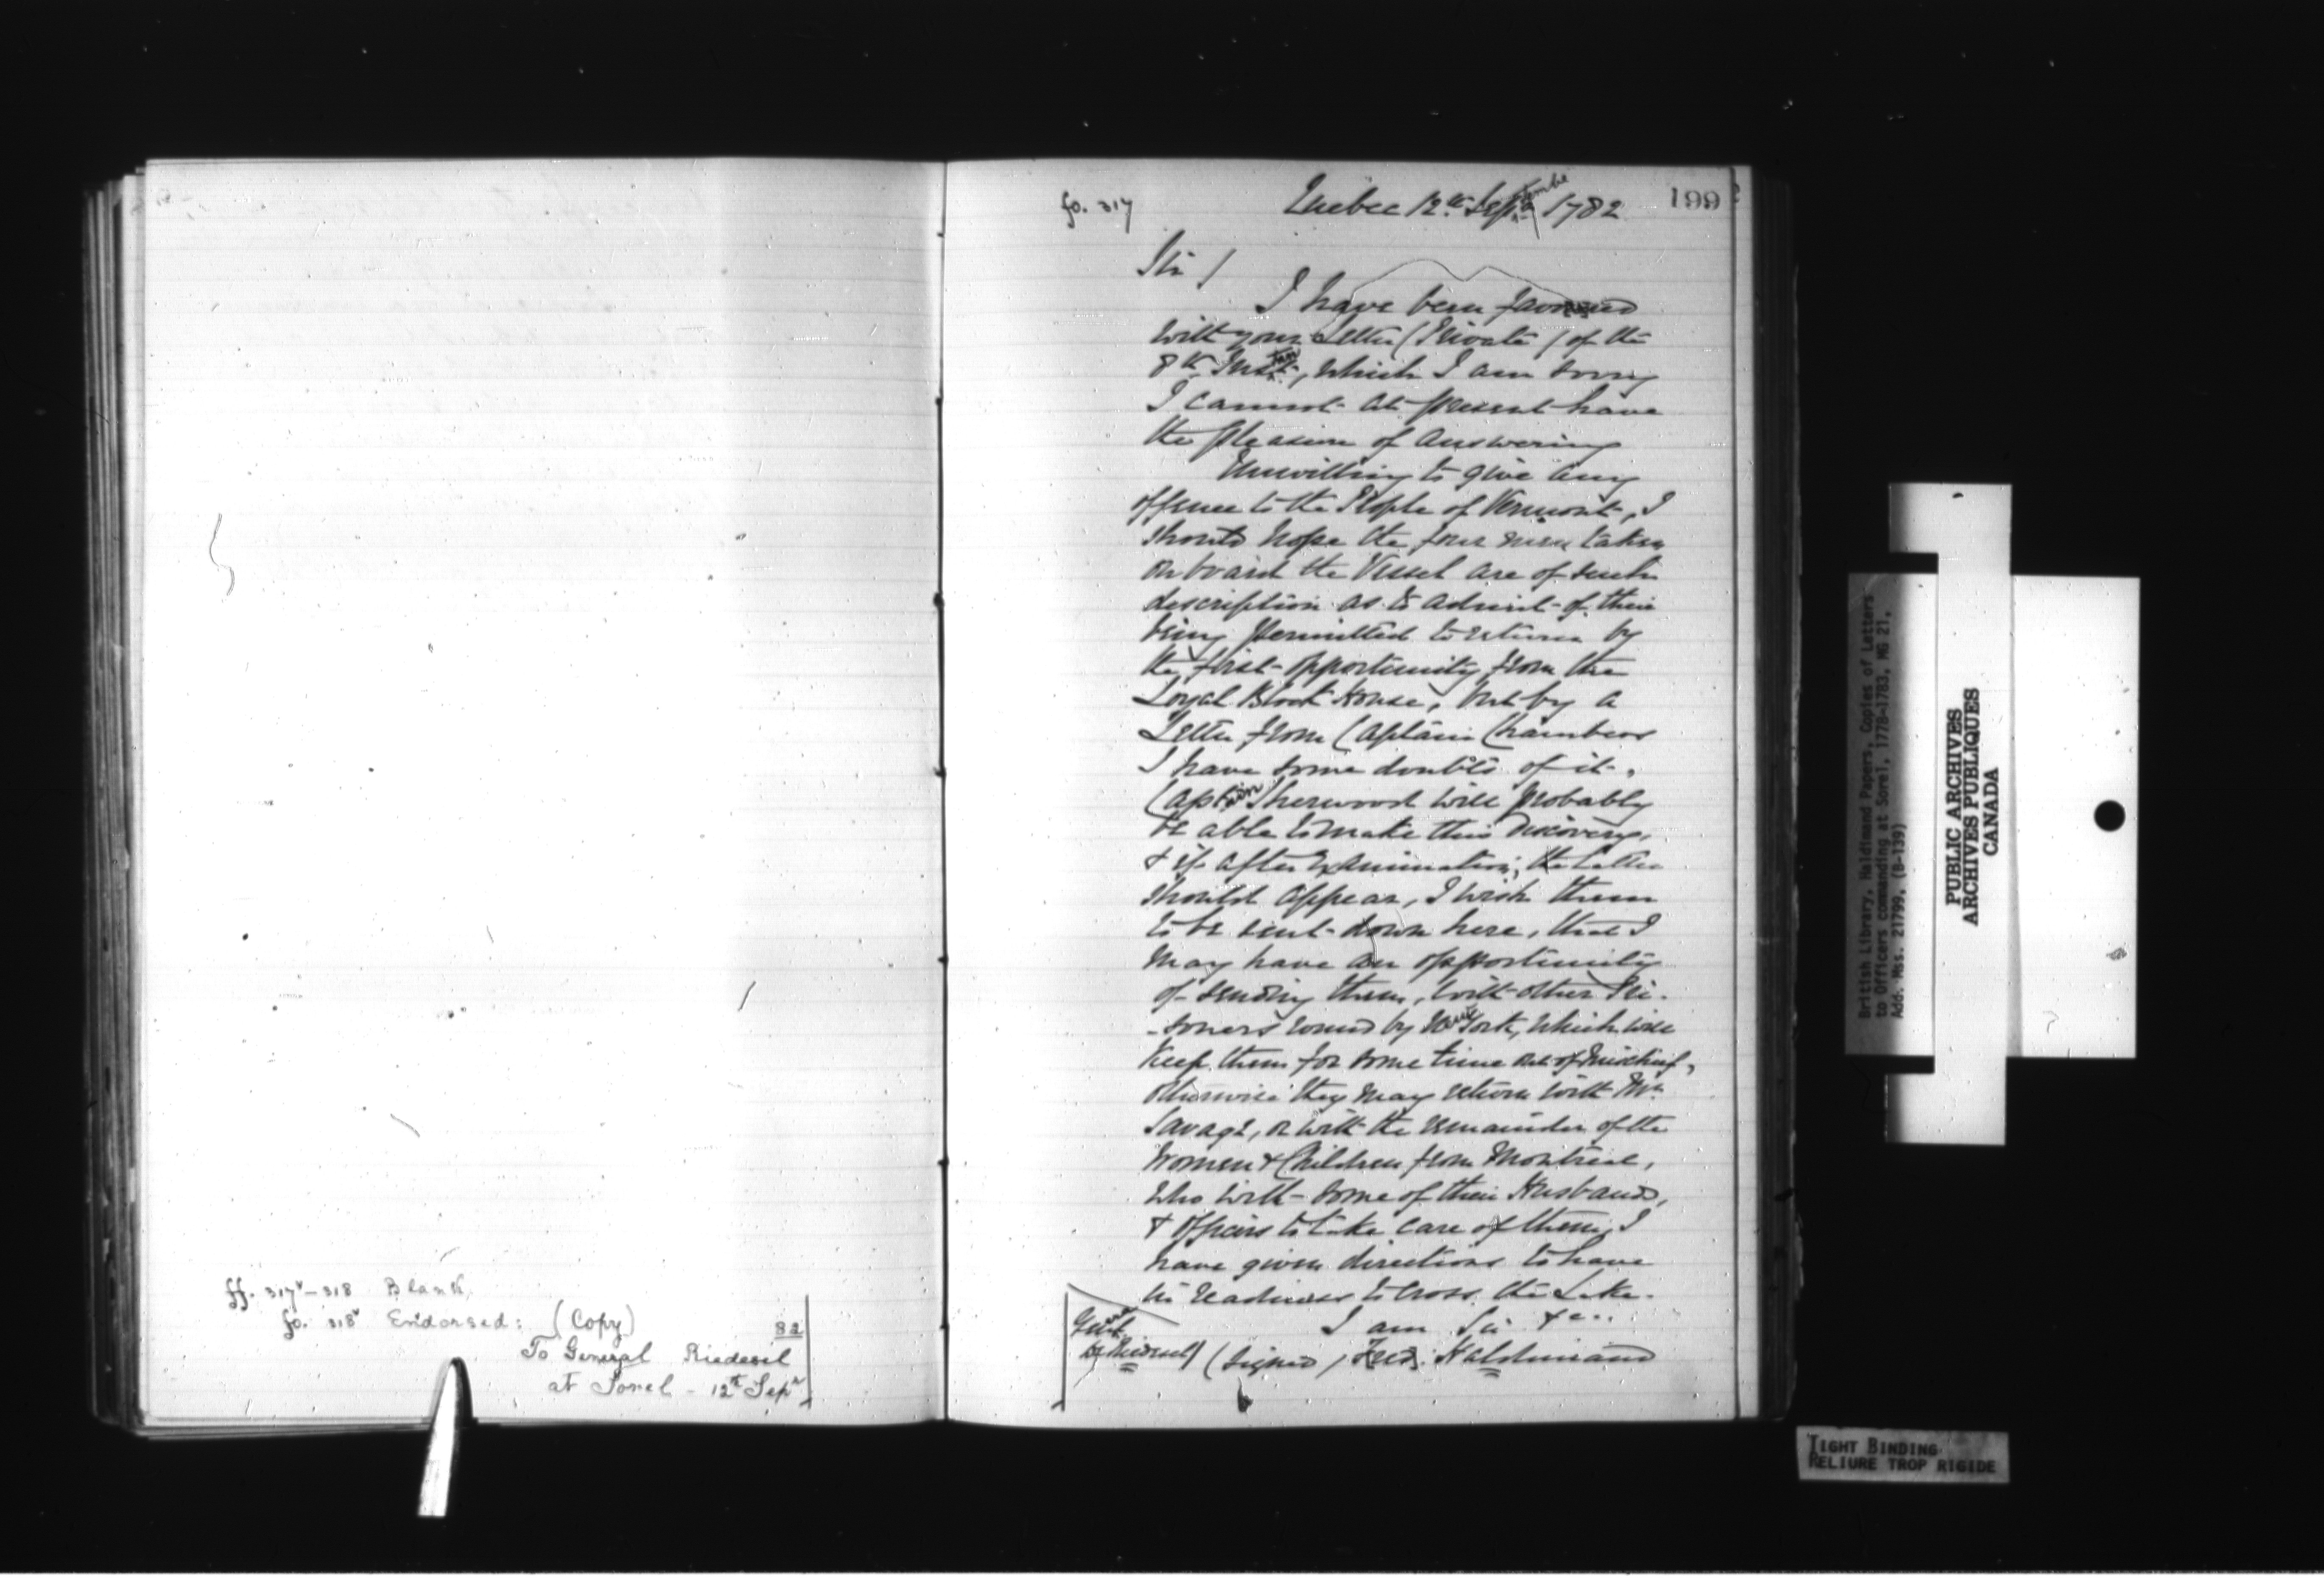 ff. 317v-318 Blank
fo. 318v Endorsed: (Copy)
82
To General Riedesel
at Sorel - 12th Sepr
fo. 317
Quebec 12th Septembe 1782
199
Sir /
I have been favored
with your Letter (Private) of the
8th Instant, which I am sorry
I cannot at present have
the pleasure of answering
Unwilling to give any
offence to the People of Vermont, I
should hope the four men taken
on board the Vessel are of such
description as to admit of their
being permitted to return by
the first opportunity from the
Loyal Block House, but by a
Letter from Captain Chambers
I have some doubts of it,
Captain Sherwood will probably
be able to make this Discovery,
& if after Examination, the latter
should appear, I wish them
to be sent down here, that I
may have an opportunity
of sending them, with other Pri-
-soners round by New York, which will
keep them for some time out of mischief,
otherwise they may return with Mr.
Savage, or with the remainder of the
Women & Children from Montreal,
who with some of their Husbands,
& Officers to take care of them, I
have given directions to have
in readiness to cross the Lake.
I am Sir &c..
de Riedesel) (Signed) Fred: Haldimand
British Library, Haldimand Papers, Copies of Letters
to Officers commanding at Sorel, 1778-1783, MG 21,
Add. Mss. 21799, (B-139)
PUBLIC ARCHIVES
ARCHIVES PUBLIQUES
CANADA
TIGHT BINDING
RELIURE TROP RIGIDE